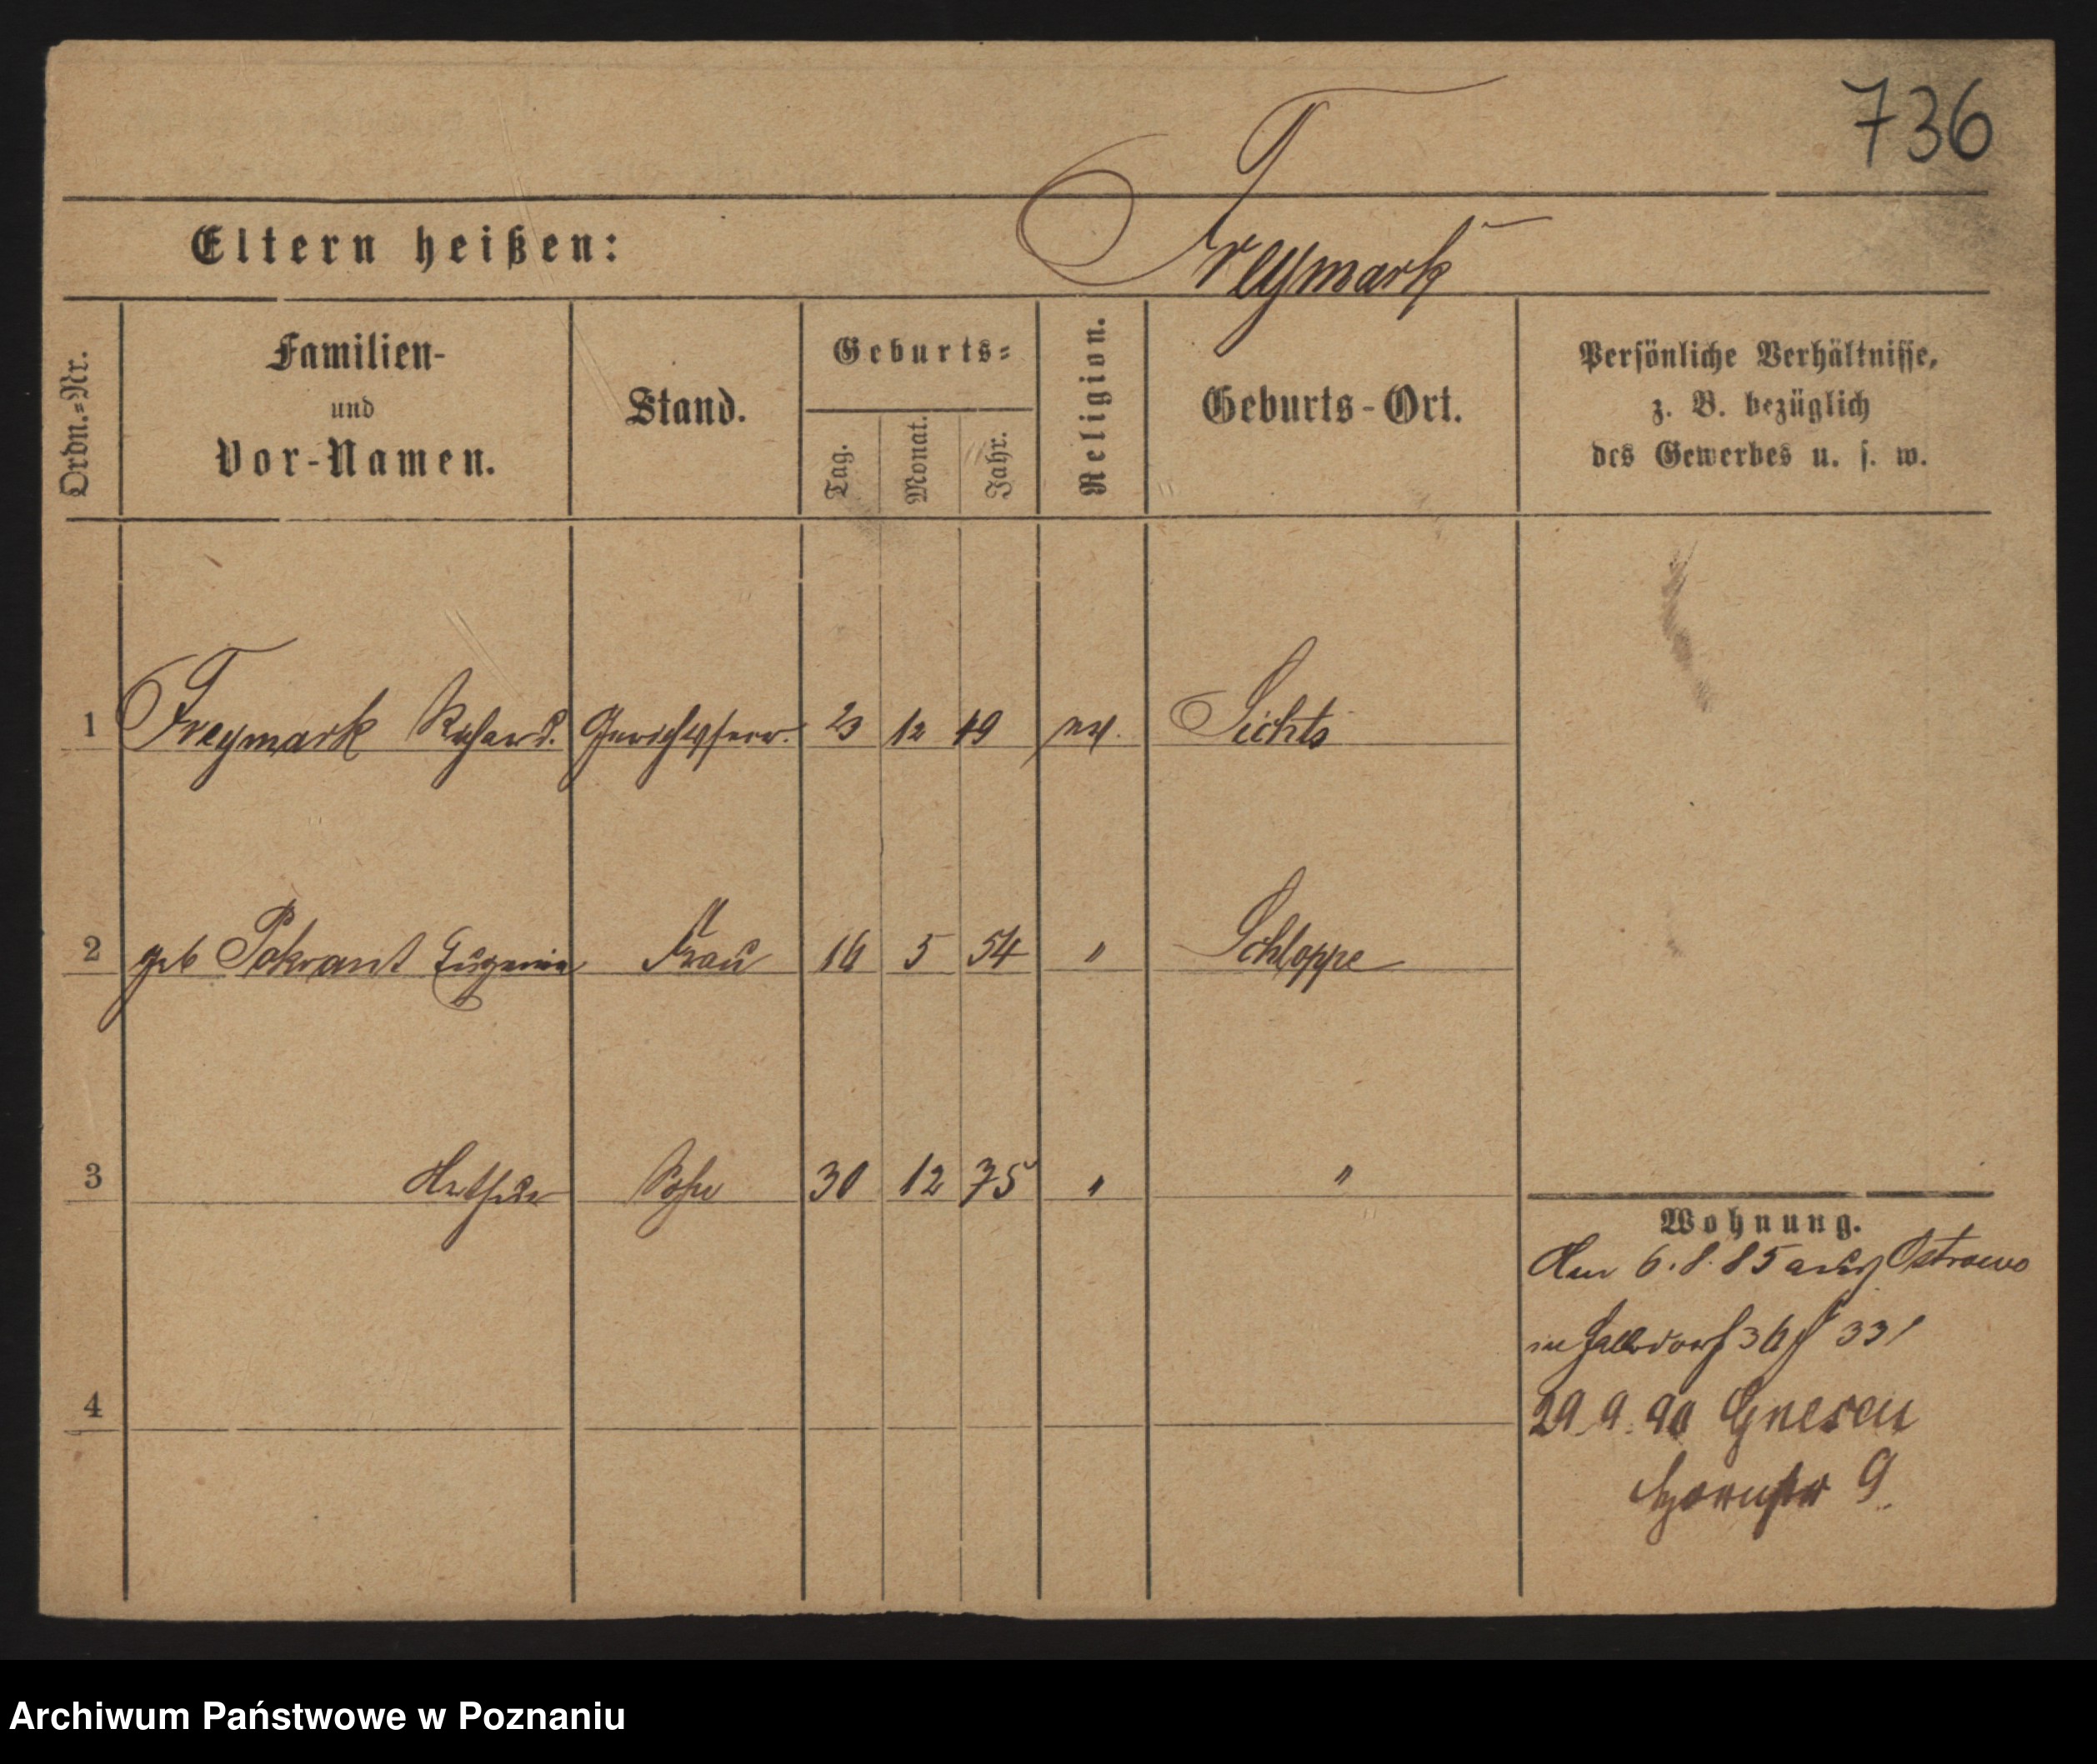 736
Eltern heißen: Freymark
Ordn.=Nr.
Familien-
und
Vor-Namen.
Stand.
Geburts=
Tag.
Monat.
Jahr.
Religion.
Geburts-Ort.
Persönliche Verhältnisse,
z. B. bezüglich
des Gewerbes u. s. w.
1 Freymark Richard. 23 12 49 ev. Sichts
2 geb Pokrant Eugenie Frau 16 5 54 " Schloppe
3 Arthur Sohn 30 12 75 " "
4
Wohnung.
Am 6.8.85 aus Ostrowo
in 36 33
29.9.90 Gnesen
9.
Archiwum Państwowe w Poznaniu